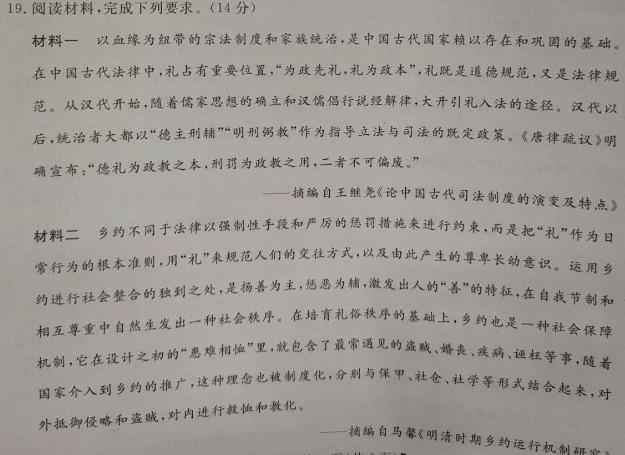 19. 阅读材料,完成下列要求。(14分)
材料一 以血缘为纽带的宗法制度和家族统治,是中国古代国家赖以存在和巩固的基础。
在中国古代法律中,礼占有重要位置,“为政先礼,礼为政本”,礼既是道德规范,又是法律规
范。从汉代开始,随着儒家思想的确立和汉儒倡行说经解律,大开引礼入法的途径。汉代以
后,统治者大都以“德主刑辅”“明刑弼教”作为指导立法与司法的既定政策。《唐律疏议》明
确宣布:“德礼为政教之本,刑罚为政教之用,二者不可偏废。”
——摘编自王继尧《论中国古代司法制度的演变及特点》
材料二 乡约不同于法律以强制性手段和严厉的惩罚措施来进行约束,而是把“礼”作为日
常行为的根本准则,用“礼”来规范人们的交往方式,以及由此产生的尊卑长幼意识。运用乡
约进行社会整合的独到之处,是扬善为主,惩恶为辅,激发出人的“善”的特征,在自我节制和
相互尊重中自然生发出一种社会秩序。在培育礼俗秩序的基础上,乡约也是一种社会保障
机制,它在设计之初的“患难相恤”里,就包含了最常遇见的盗贼、婚丧、疾病、诬枉等事,随着
国家介入到乡约的推广,这种理念也被制度化,分别与保甲、社仓、社学等形式结合起来,对
外抵御侵略和盗贼,对内进行救恤和教化。
——摘编自马馨《明清时期乡约运行机制研究》